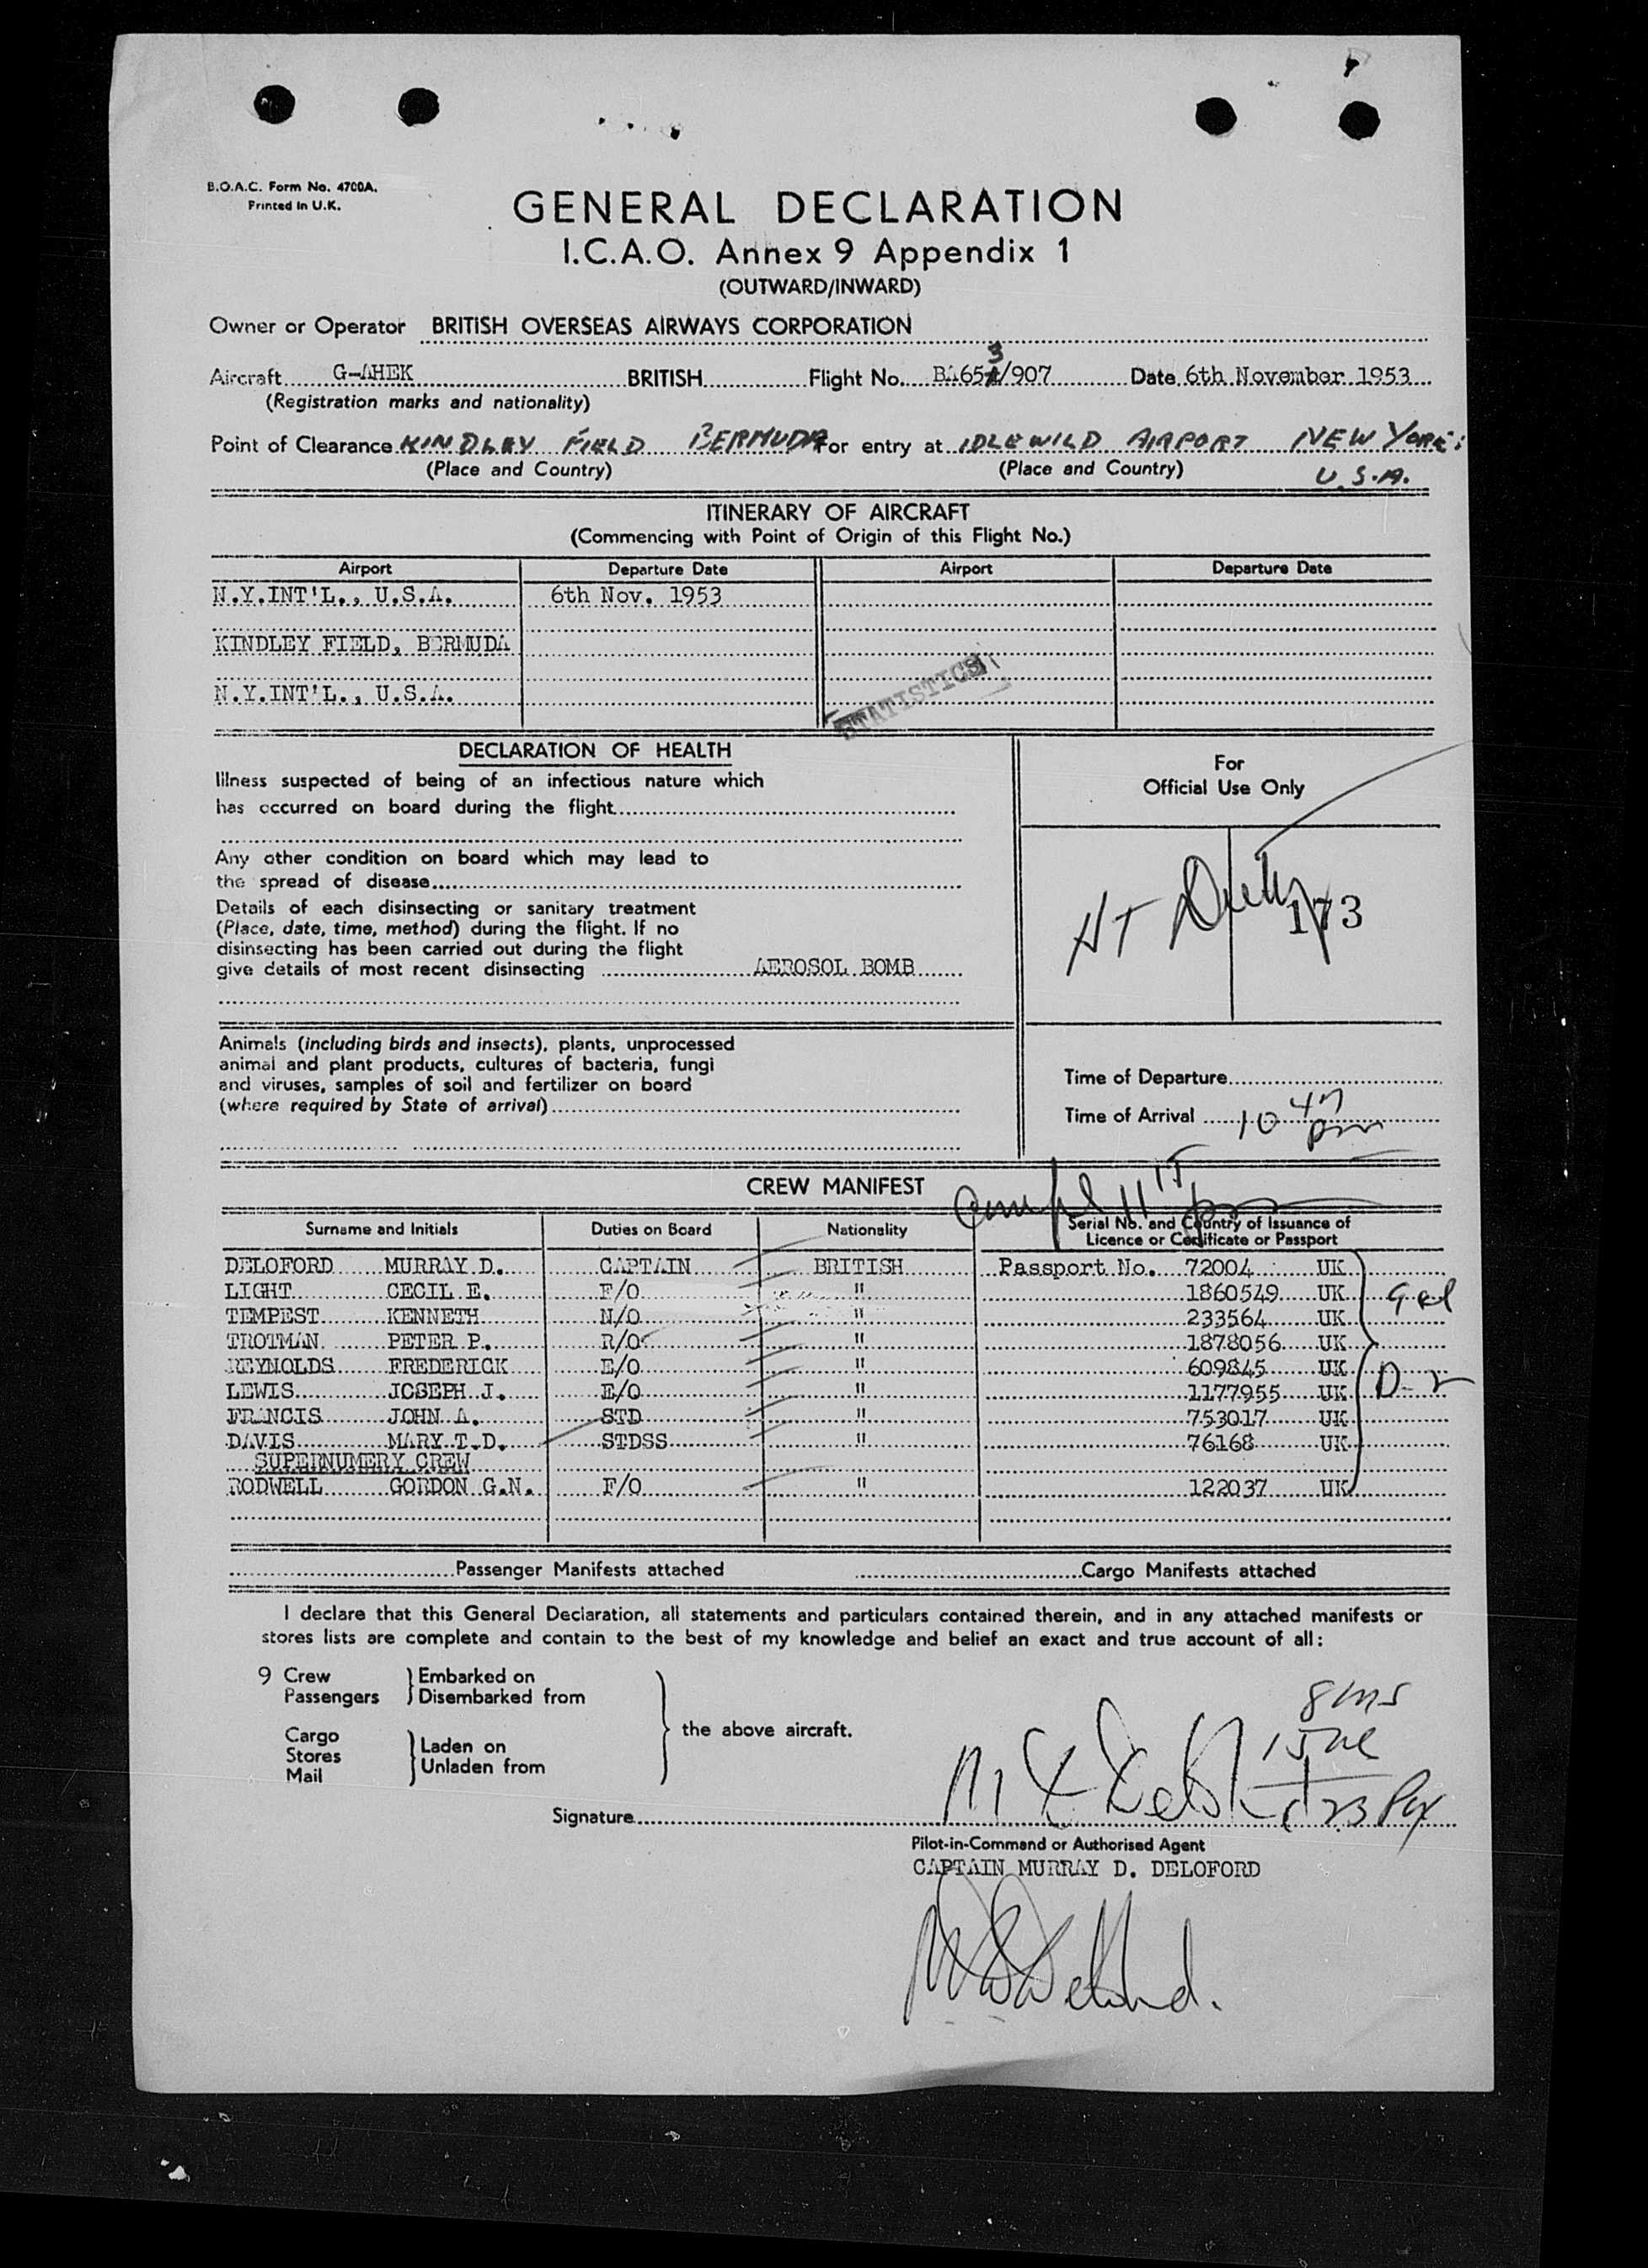 B.O.A.C. Form No. 4700A.
Printed in U.K.
GENERAL DECLARATION
I.C.A.O. Annex 9 Appendix 1
(OUTWARD/INWARD)
Owner or Operator BRITISH OVERSEAS AIRWAYS CORPORATION
3
Aircraft G-AHEK BRITISH Flight No. BA65 /907 Date 6th November 1953
(Registration marks and nationality)
Point of Clearance KINDLEY FIELD BERMUDA For entry at IDLEWILD AIRPORT NEW YORK:
(Place and Country) (Place and Country) U.S.A.
ITINERARY OF AIRCRAFT
(Commencing with Point of Origin of this Flight No.)
Airport Departure Date Airport Departure Date
N.Y.INT'L., U.S.A. 6th Nov. 1953
KINDLEY FIELD, BERMUDA
N.Y.INT'L., U.S.A.
STATISTICS
DECLARATION OF HEALTH
Illness suspected of being of an infectious nature which
has occurred on board during the flight
Any other condition on board which may lead to
the spread of disease
Details of each disinsecting or sanitary treatment
(Place, date, time, method) during the flight. If no
disinsecting has been carried out during the flight
give details of most recent disinsecting AEROSOL BOMB
Animals (including birds and insects), plants, unprocessed
animal and plant products, cultures of bacteria, fungi
and viruses, samples of soil and fertilizer on board
(where required by State of arrival)
For
Official Use Only
173
Time of Departure
Time of Arrival 10 47 pm
CREW MANIFEST
11 15 pm
Surname and Initials Duties on Board Nationality Serial No. and Country of Issuance of
Licence or Certificate or Passport
DELOFORD MURRAY D. CAPTAIN BRITISH Passport No. 72004 UK
LIGHT CECIL E. F/O " 1860549 UK
TEMPEST KENNETH N/O " 233564 UK
TROTMAN PETER P. R/O " 1878056 UK
REYNOLDS FREDERICK E/O " 609845 UK
LEWIS JOSEPH J. E/O " 1177955 UK
FRANCIS JOHN A. STD " 753017 UK
DAVIS MARY T.D. STDSS " 76168 UK
SUPERNUMERY CREW
RODWELL GORDON G.N. F/O " 122037 UK
D-2
Passenger Manifests attached Cargo Manifests attached
I declare that this General Declaration, all statements and particulars contained therein, and in any attached manifests or
stores lists are complete and contain to the best of my knowledge and belief an exact and true account of all:
9 Crew Embarked on
Passengers Disembarked from
the above aircraft.
Cargo
Stores
Mail
Laden on
Unladen from
23 Pax
Signature
Pilot-in-Command or Authorised Agent
CAPTAIN MURRAY D. DELOFORD